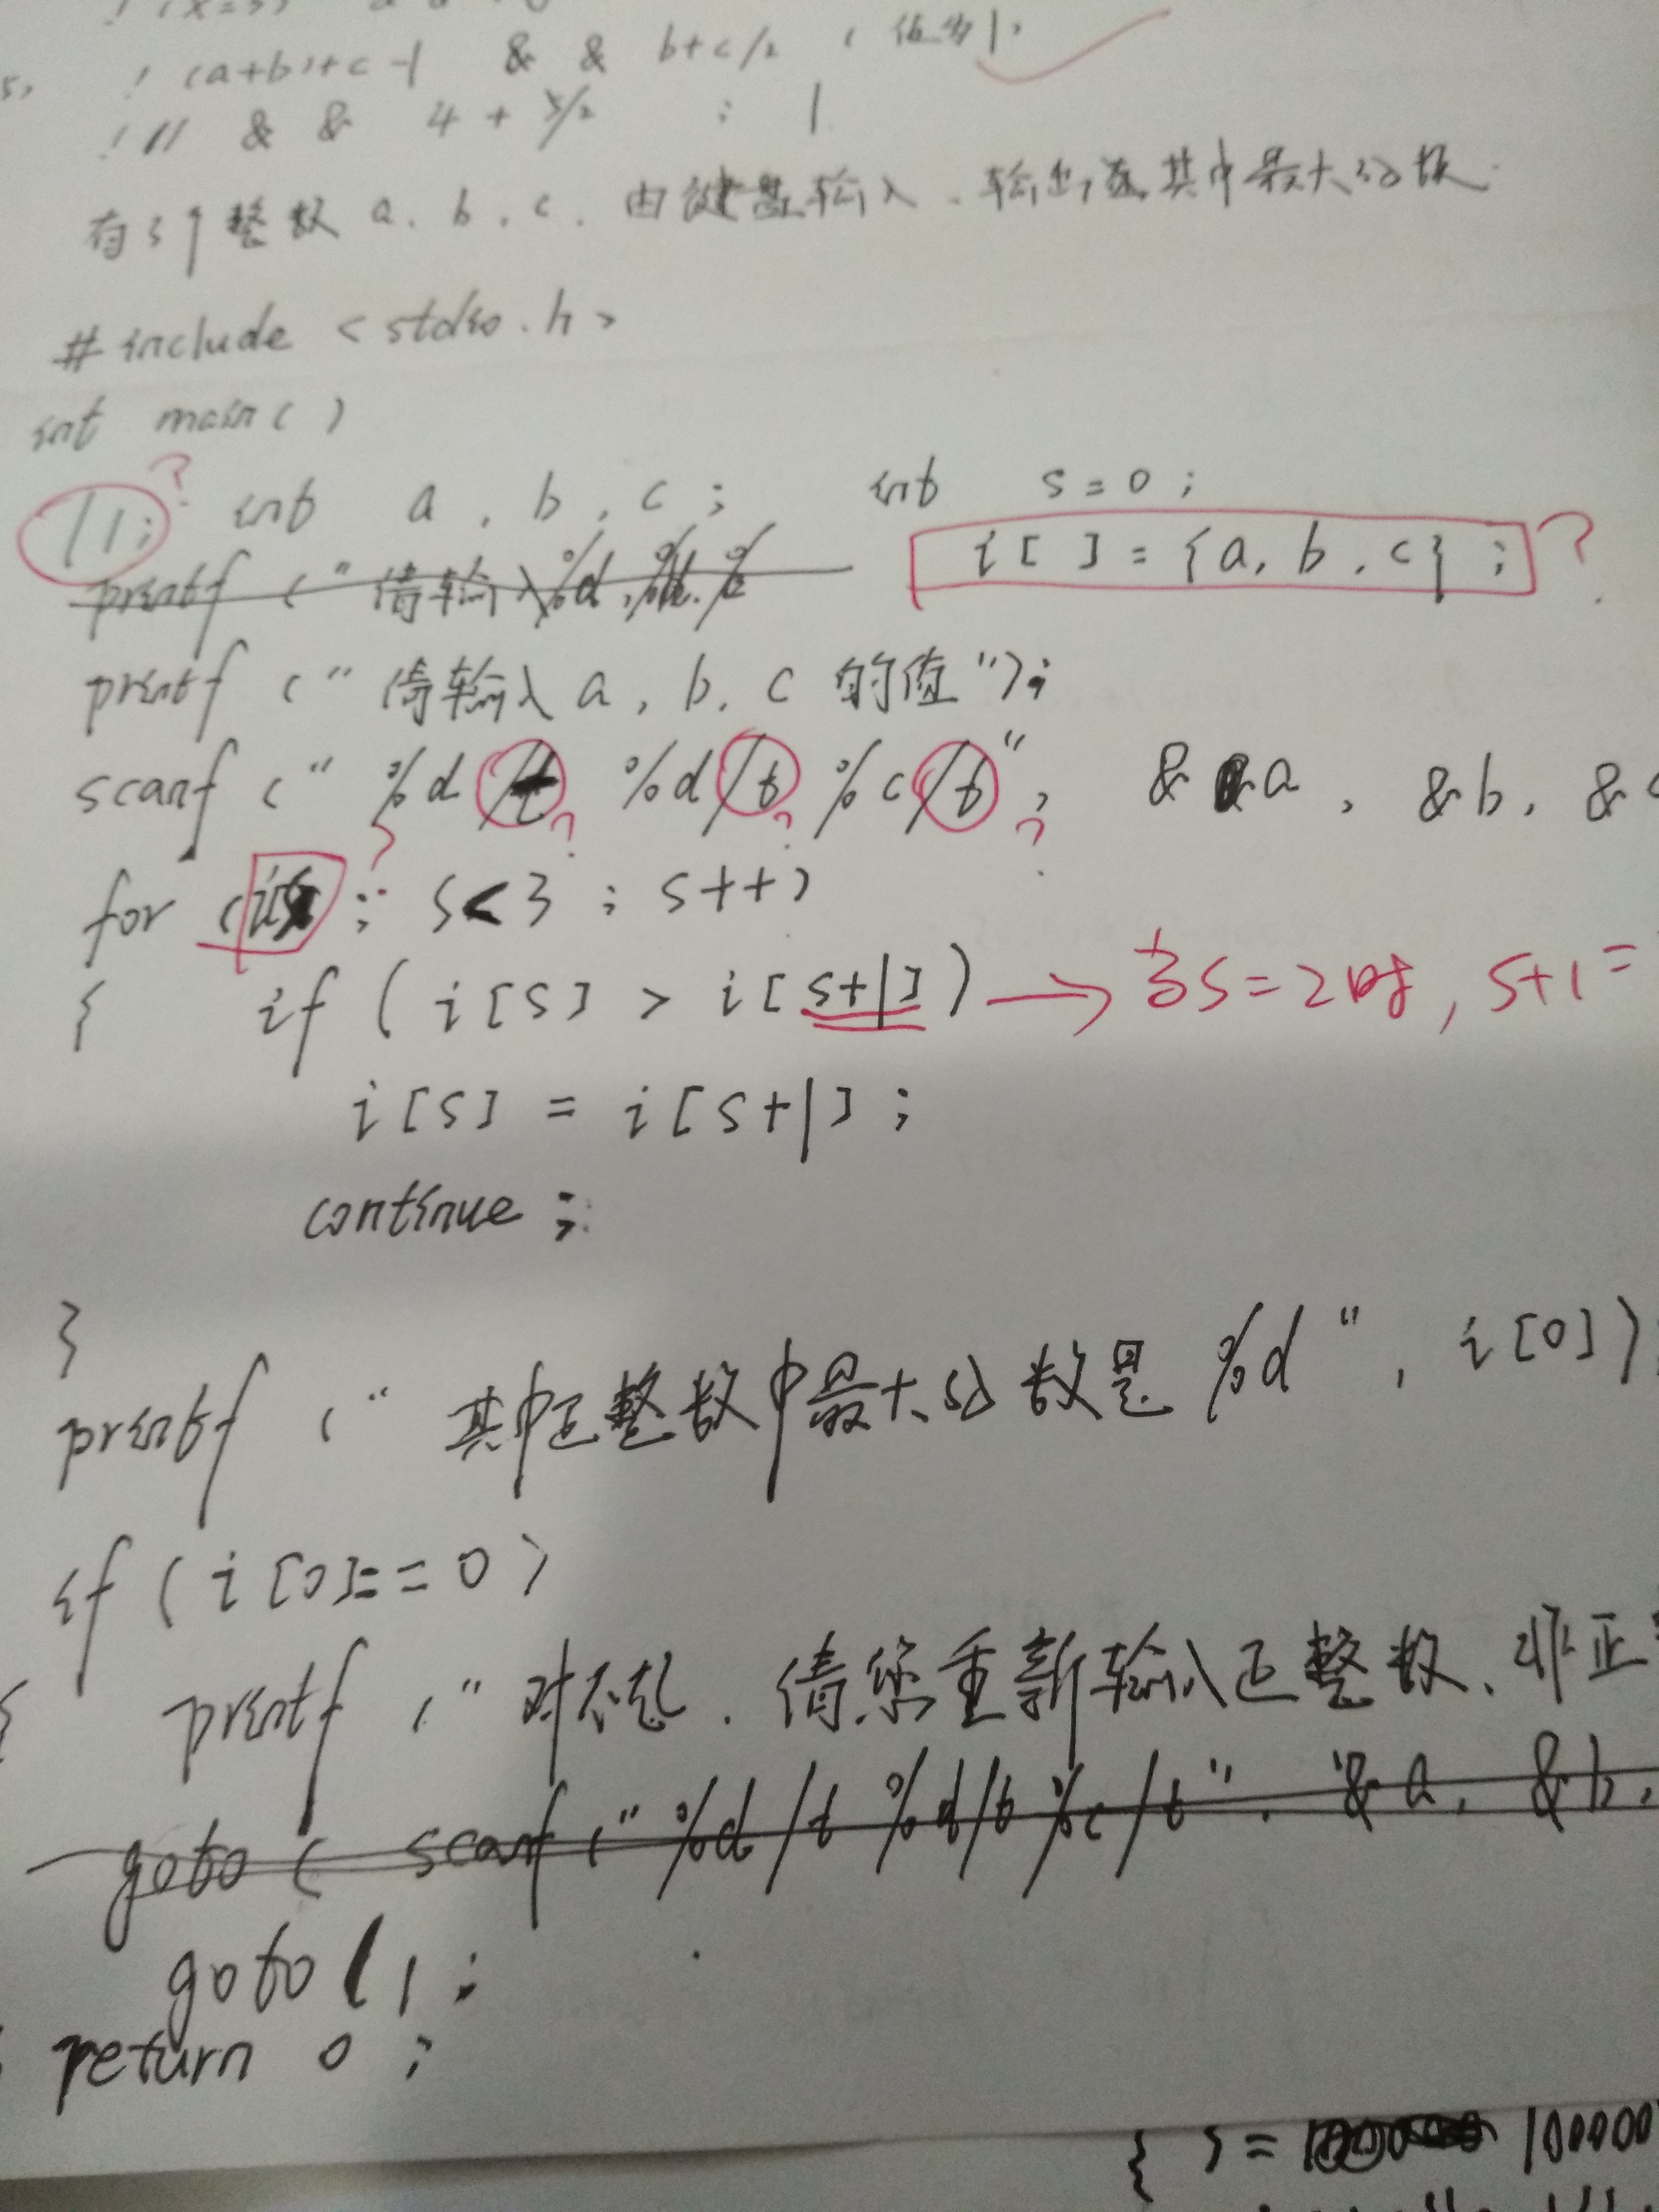 5, ! (a+b)+c-1 & & b+c/2 , 值为1.
! 11 & & 4 + 5/2 : 1
有3个整数 a. b. c. 由键盘输入. 输出其中最大的数.
#include <stdio.h>
int main()
l1; ? int a, b, c; int s=0;
i[ ]={a, b, c}; ?
printf ("请输入%d
printf ("请输入 a, b, c 的值");
scanf ("%d/t %d/t %c/t", & a, &b, &
? ? ?
for ( ; s<3; s++) ?
{ if (i[s] > i[s+1]) → 当s=2时, s+1=
i[s] = i[s+1];
continue;
}
printf ("其中正整数中最大的数是%d", i[0])
if (i[0]==0)
{ printf ("对不起. 请您重新输入正整数、非正
goto ( scanf ("%d/t %d/t %c/t". & a, & b,
goto l1;
return 0;
{ s = 100000